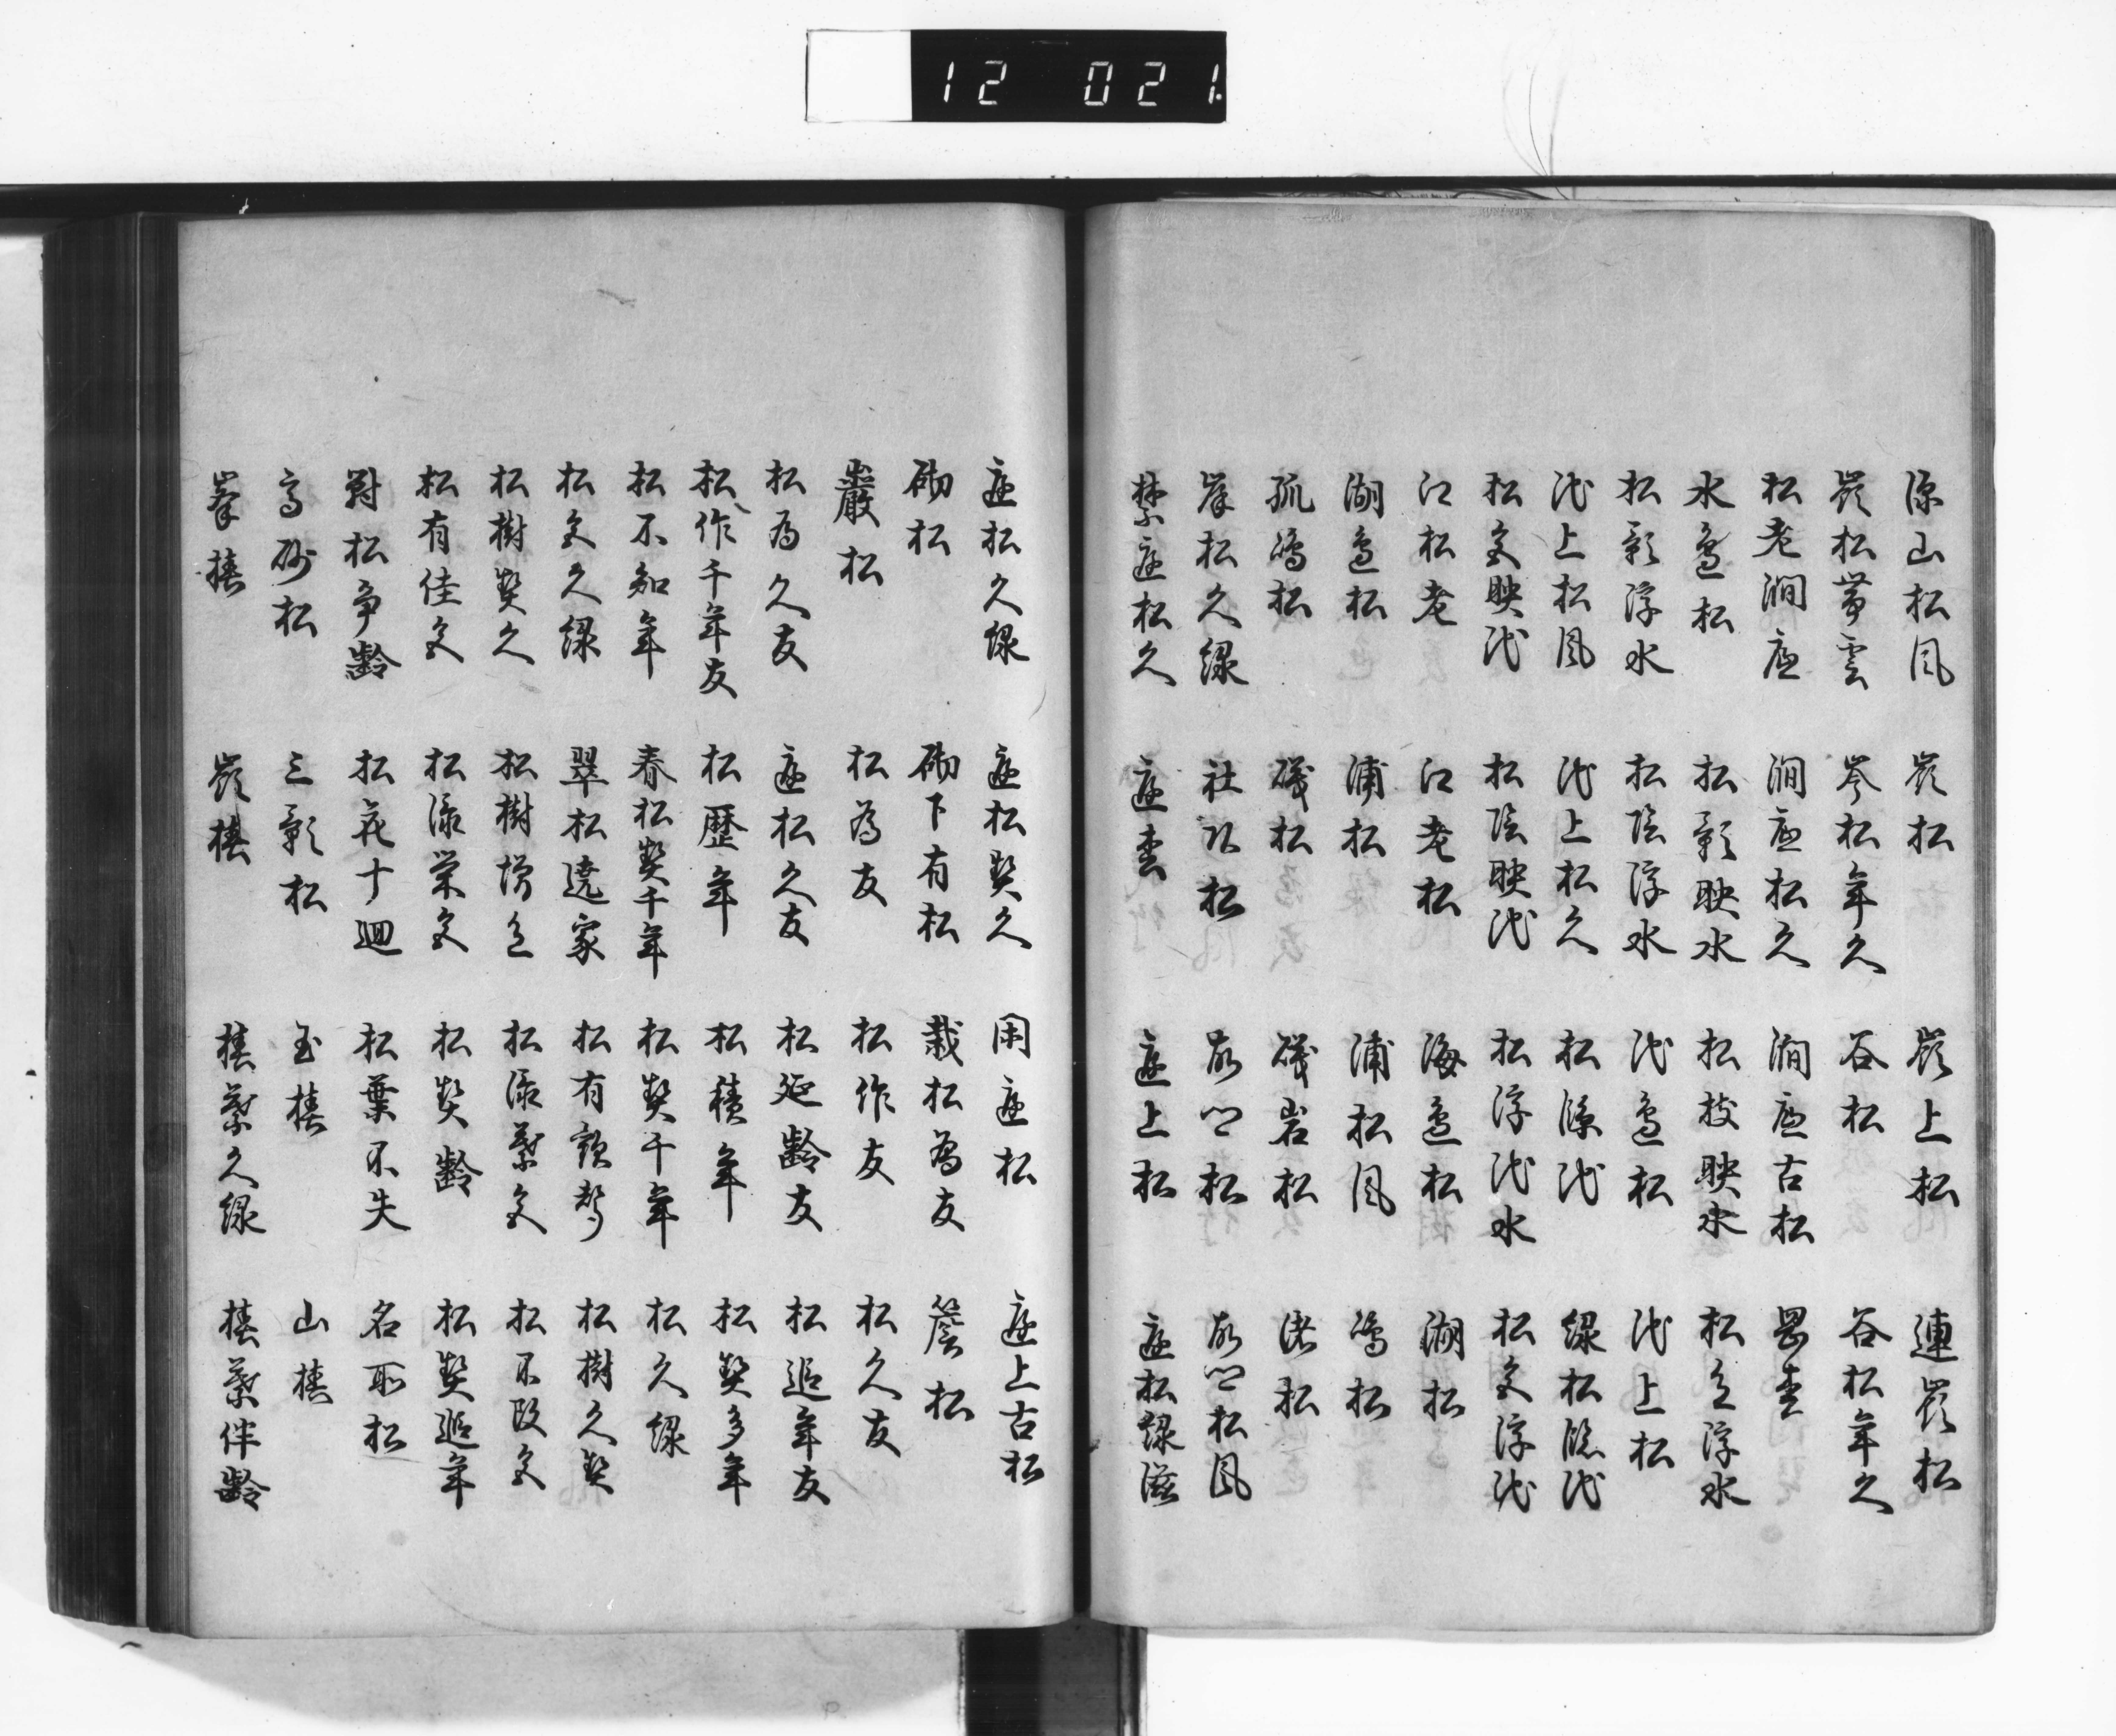 12 021
深山松風 嶺松 嶺上松 連嶺松
嶺松帯雲 岑松年久 谷松 谷松年久
松老澗底 澗底松久 澗底古松
水邉松 松影映水 松枝映水 松色浮水
松影浮水 松陰浮水 池邉松 池上松
池上松風 池上松久 松 池 緑松 池
松色映池 松陰映池 松浮池水 松色浮池
江松老 江老松 海邉松 湖松
湖邉松 浦松 浦松風 嶋松
孤嶋松 礒松 礒岩松 渚松
岸松久緑 社頭松 故郷松 故郷松風
禁庭松久 庭松 庭上松 庭松緑滋
庭松久緑 庭松契久 閑庭松 庭上古松
砌松 砌下有松 栽松為友 簷松
巌松 松為友 松作友 松久友
松為久友 庭松久友 松延齢友 松追年友
松作千年友 松歴年 松積年 松契多年
松不知年 春松契千年 松契千年 松久緑
松色久緑 翠松遶家 松有 聲 松樹久契
松樹契久 松樹増色 松添榮色 松不改色
松有佳色 松添榮色 松契齢 松契追年
對松争齢 松花十廻 松葉不失 名所松
高砂松 三影松 玉椿 山椿
峯椿 嶺椿 椿葉久緑 椿葉伴齢